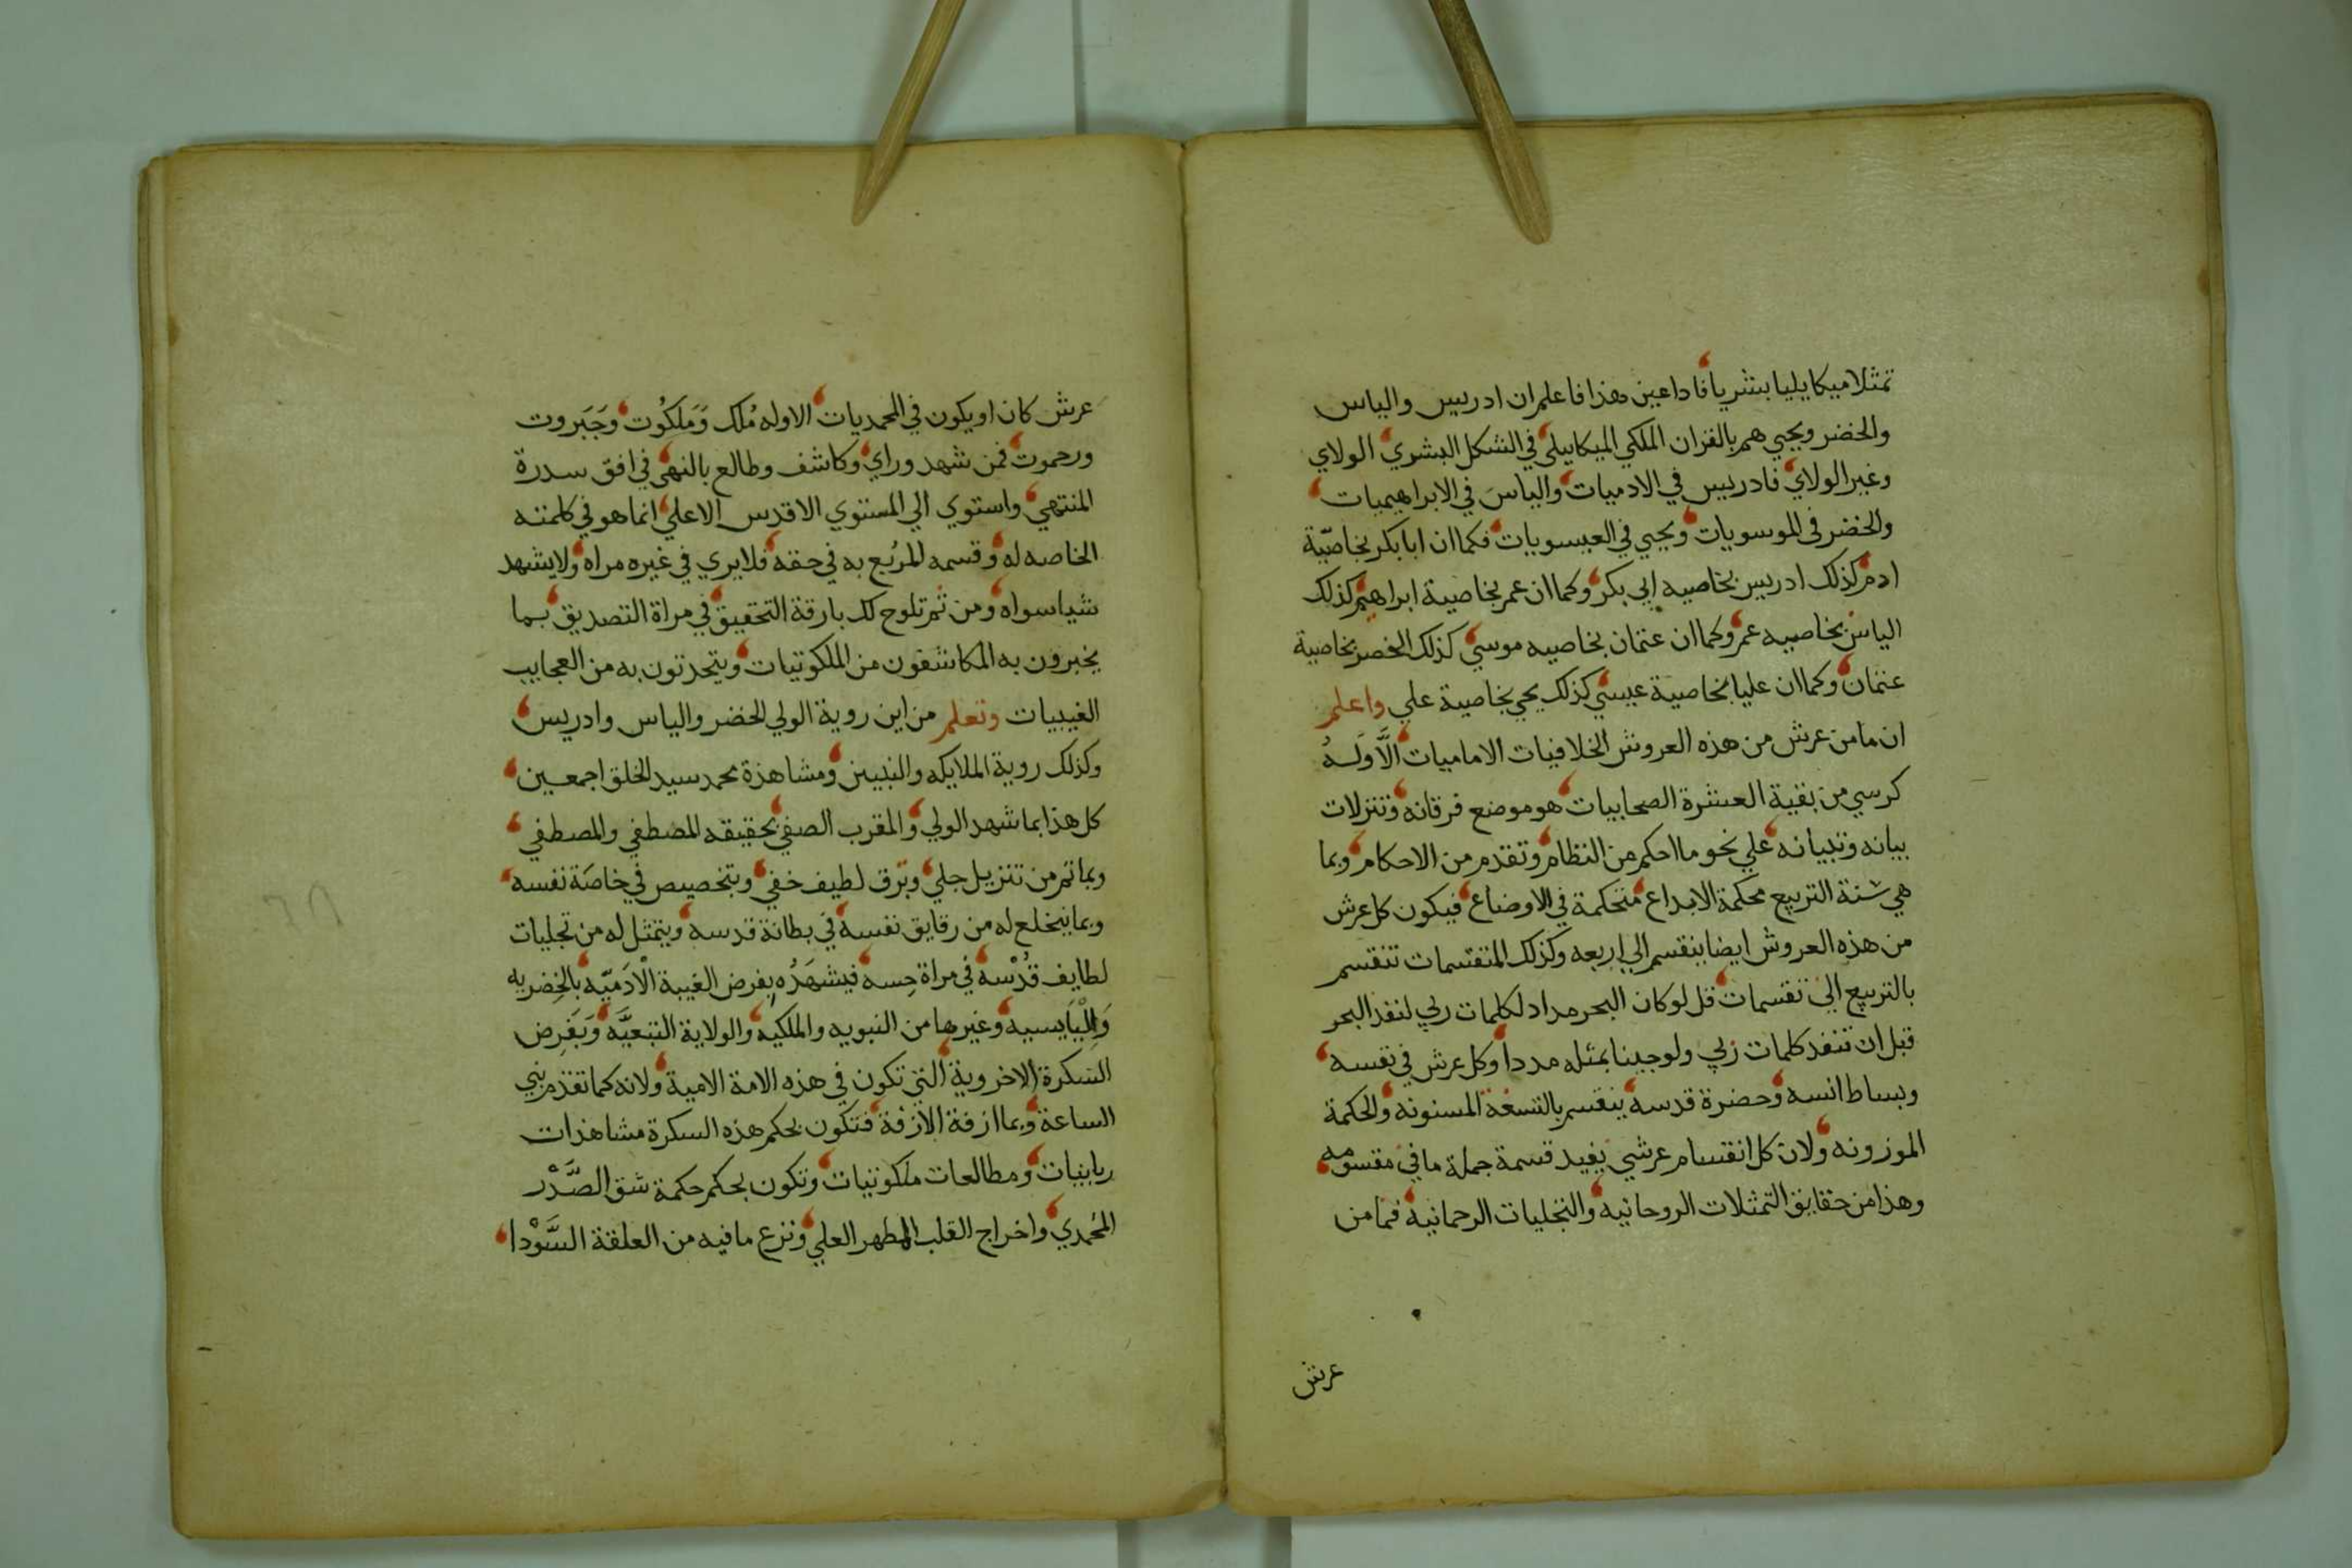 تمثلا ميكايليا بشريا فاذا عين هذا فاعلم ان ادريس والياس
والخضر ويحيي هم بالفزان الملكي الميكاييلي في الشكل البشري الولاي
وغير الولاي فادريس في الادميات والياس في الابراهيميات
والخضر في الموسويات ويحيي في العيسويات فكما ان ابا بكر بخاصية
ادم كذلك ادريس بخاصيه ابي بكر وكما ان عمر بخاصية ابراهيم كذلك
الياس بخاصيه عمر وكما ان عثمان بخاصيه موسي كذلك الخضر بخاصية
عثمان وكما ان عليا بخاصية عيسي كذلك يحيي بخاصية علي واعلم
ان ما من عرش من هذه العروش الخلافيات الاماميات الَّا وَلهُ
كرسي من بقية العشرة الصحابيات هو موضع فرقانه وتنزلات
بيانه وتبيانه علي نحو ما احكم من النظام وتقدم من الاحكام وبما
هي سنة التربيع محكمة الابداع متحكمة في الاوضاع فيكون كل عرش
من هذه العروش ايضا ينقسم الي اربعه وكذلك المتقسمات تنقسم
بالتربيع الي تقسمات قل لو كان البحر مداد لكلمات ربي لنفذ البحر
قبل ان تنفد كلمات ربي ولو جينا بمثله مددا وكل عرش في نفسه
وبساط انسه وحضرة قدسه ينقسم بالتسغة المسنونه والحكمة
الموزونه ولان كل انقسام عرشي يفيد قسمة جملة ما في مقسومه
وهذا من حقايق التمثلات الروحانيه والتجليات الرحمانية فما من
عرش
عرش كان او يكون في المحمديات الا وله مُلك وَمَلكُوت وجَبَروت
ورحموت فمن شهد وراي وكاشف وطالع بالنهي في افق سدرة
المنتهي واستوي الي المستوي الاقدس الاعلي انما هو في كلمته
الخاصه له وقسمه المربع به في حقه فلا يري في غيره مراه ولا يشهد
شيا سواه ومن ثم تلوح لك بارقة التحقيق في مراة التصديق بما
يخبرون به المكاشفون من الملكوتيات ويتحدثون به من العجايب
الغيبيات وتعلم من اين روية الولي للخضر والياس وادريس
وكذلك روية الملايكه والنبيين ومشاهدة محمد سيد الخلق اجمعين
كل هذا بما شهد الولي والمقرب الصفي بحقيقه المصطفي والمصطفي
وبما تم من تنزيل جلي وبَرق لطيف خفي وبتخصيص في خاصَة نفسه
وبما ينخلع له من رقايق نفسه في بطانة قدسه ويتمثل له من تجليات
لطايف قُدْسه في مراة حِسه فيشهَدُه بفرض الغيبة الْادَميّه بالخِضريه
وَالْيَاسيه وغيرها من النبويه والملكيه والولاية التبَعيَّه وَبَفرِض
السكرة الاخروية التي تكون في هذه الامة الامية ولانه كما تقدم نبي
الساعة وبما ازفة الازفة فتكون بحكم هذه السكرة مشاهذات
ربانيات ومطالعات ملكوتيات وتكون بحكم حكمة شق الصَّدْر
المحمدي واخراج القلب المطهر العلي ونزع ما فيه من العلقة السَّوْدا